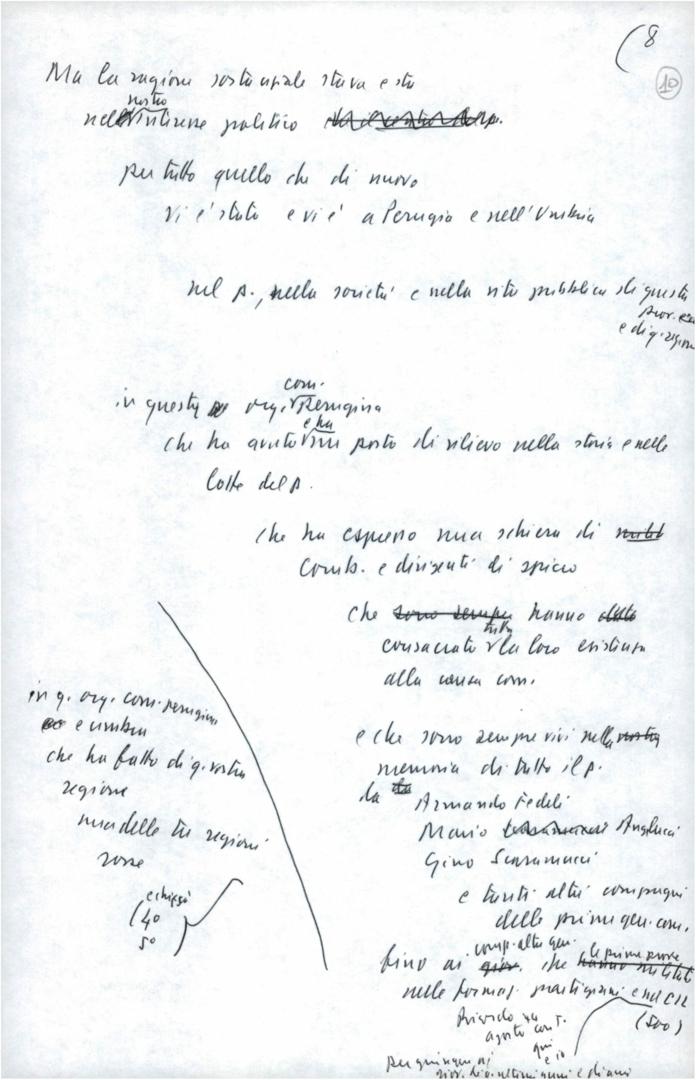 (8
10
Ma la ragione sostanziale stava e sta
nell' nostro interesse politico
per tutto quello che di nuovo
vi è stato e vi è a Perugia e nell'Umbria
nel p., nella società e nella vita pubblica di questa
prov.
e di q. regione
in questa org. com. perugina
che ha avuto e ha un posto di rilievo nella storia e nelle
lotte del p.
che ha espresso una schiera di
comb. e dirigenti di spicco
che sono sempre hanno dato
consacrato tutta la loro esistenza
alla causa com.
e che sono sempre vivi nella nostra
memoria di tutto il p.
da Armando Fedeli
Mario Angelucci
Gino Scaramucci
e tanti altri compagni
delle prime gen. com.
fino ai comp. altre gen. che le prime prove
hanno militato
nelle formaz. partigiane e nel CLN
(500)
Ricordo
agosto con T.
qui
e io
in q. org. com. perugina
e umbra
che ha fatto di q. vostra
regione
una delle tre regioni
rosse
(40
50)